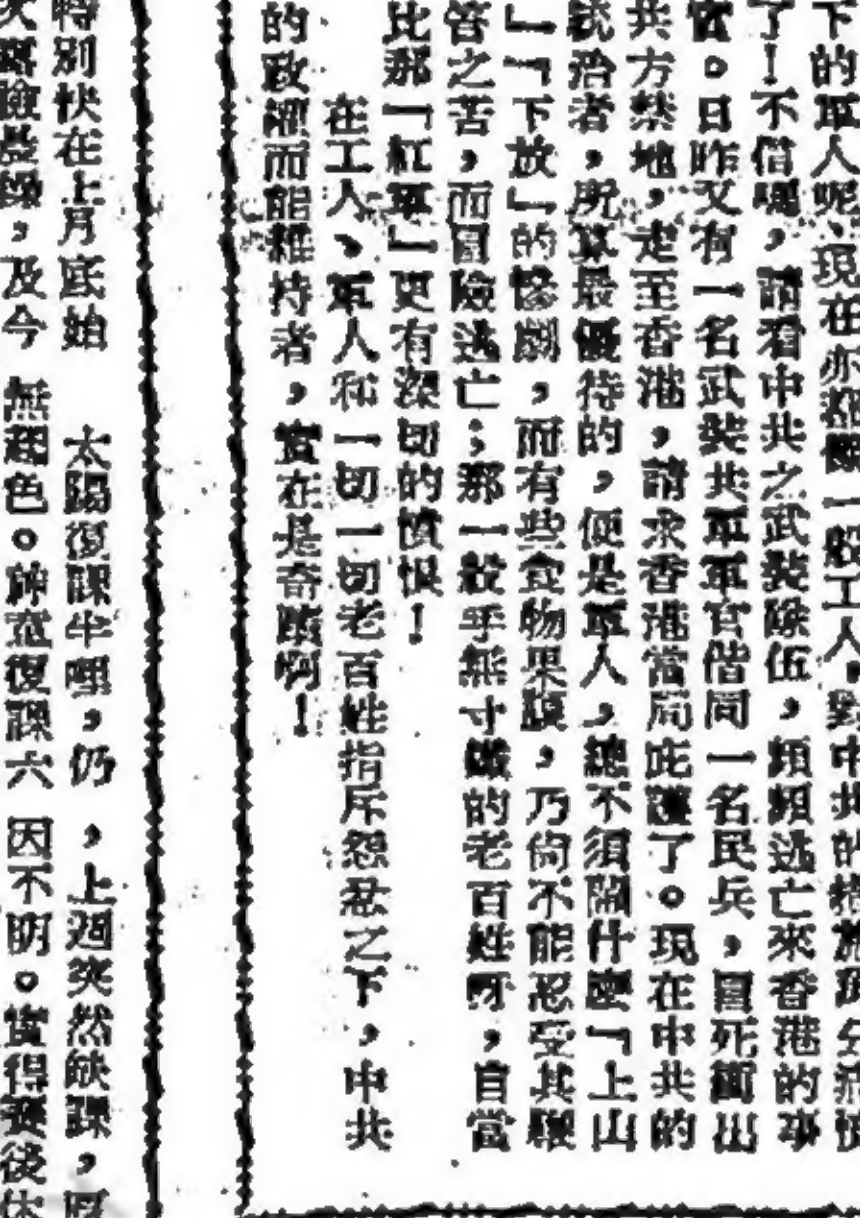 下的軍人呢，現在亦都跟一般工人，對中共的措施
了！不信嗎，請看中共之武裝隊伍，頻頻逃亡來香港的事
實。日昨又有一名武裝共軍軍官偕同一名民兵，冒死衝出
共方禁地，走至香港，請求香港當局庇護了。現在中共的
統治者，所算最優待的，便是軍人，總不須鬧什麼「上山
」「下放」的慘劇，而有些食物果腹，乃尚不能忍受其艱
苦之苦，而冒險逃亡；那一般手無寸鐵的老百姓呀，自當
比那「紅軍」更有深切的憤恨！
在工人、軍人和一切一切老百姓指斥怨忿之下，中共
的政權而能維持者，實在是奇蹟啊！
特別快在上月底始
太陽復課半哩，仍
，上週突然缺課，
次冒險，及今
無起色。復課六
因不明。後休